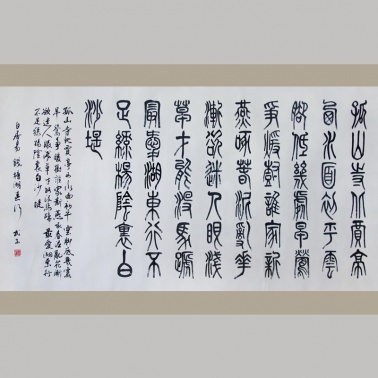 孤山寺北賈亭
西水面初平雲
腳低幾處早鶯
爭暖樹誰家新
燕啄春泥亂華
漸欲迷人眼淺
草才能沒馬蹄
最愛湖東行不
足綠楊陰裏白
沙堤
孤山寺北賈亭西水面初平雲腳低幾處
早鶯爭暖樹誰家新燕啄春泥亂花漸
欲迷人眼淺草才能沒馬蹄最愛湖東行
不足綠楊陰裏白沙堤
白居易錢塘湖春行